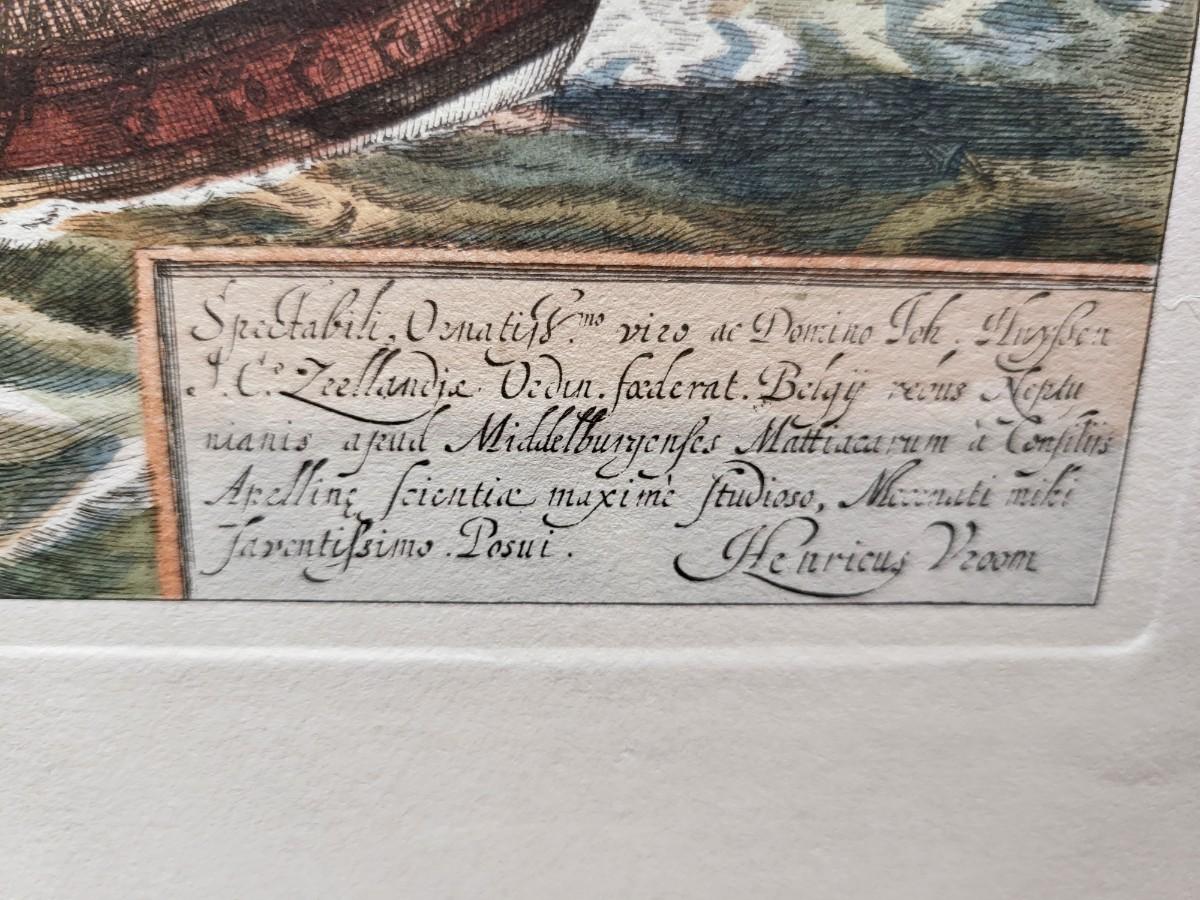 Spectabili, Ornatiss.mo viro ac Domino Joh. Huyssen
J. C. Zeellandiæ. Ordin. fœderat. Belgij rebus Neptu
nianis apud Middelburgenses Mattiacarum à Consilijs
Apellinę scientiæ maximè studioso, Mecenati mihi
faventissimo. Posui.
Henricus Vroom